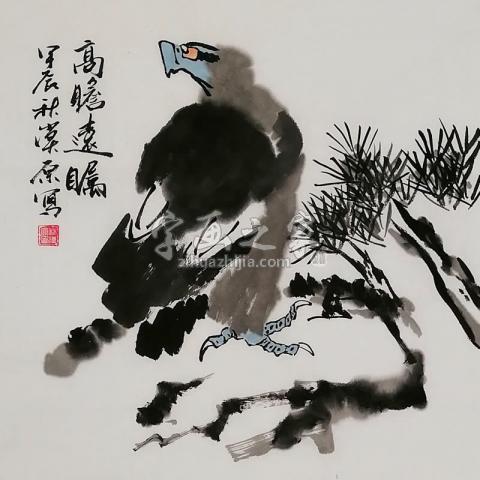 高瞻遠瞩
甲辰秋漠原寫
字画之家
zihuazhijia.com